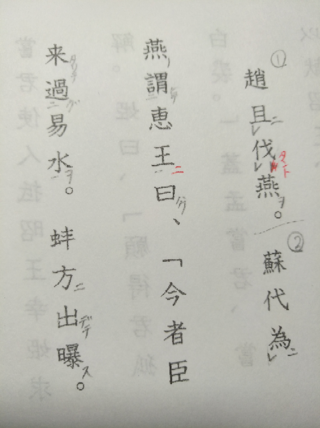 ① 趙且伐燕。② 蘇代為
燕謂恵王曰、「今者臣
来過易水。蚌方出曝。